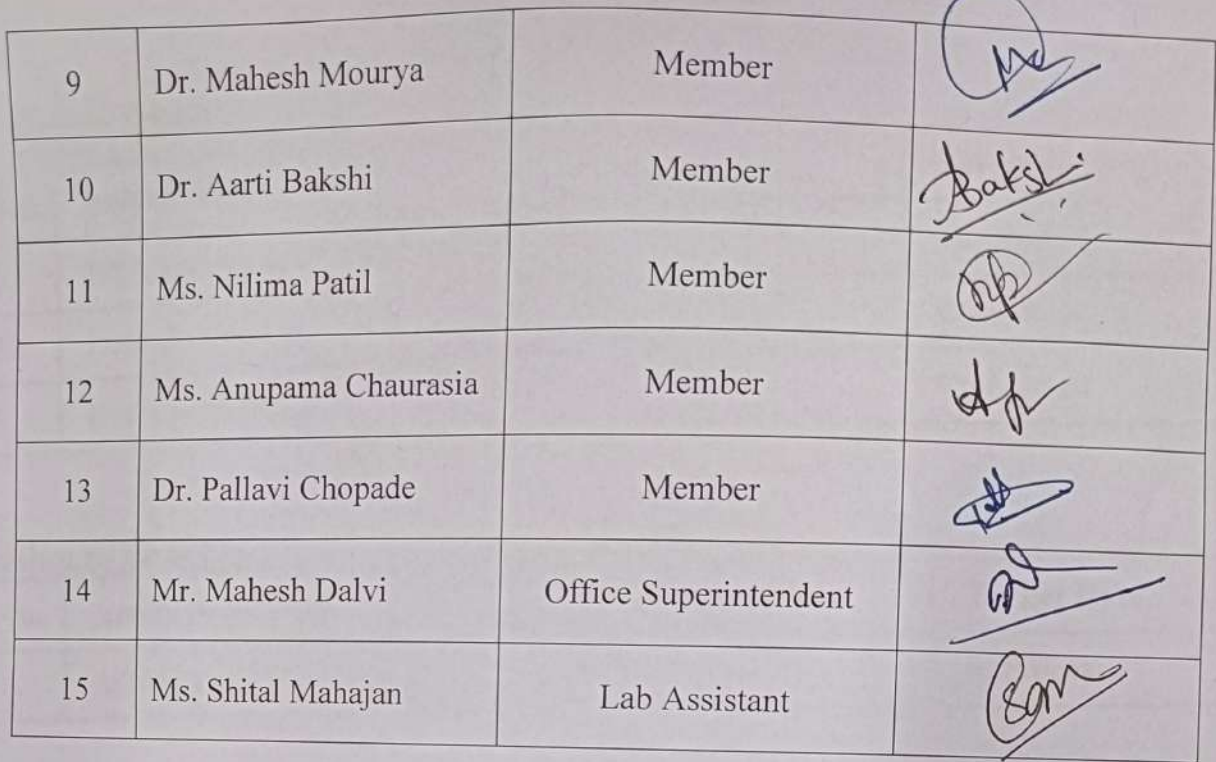 9 Dr. Mahesh Mourya Member
10 Dr. Aarti Bakshi Member ABakshi
11 Ms. Nilima Patil Member
12 Ms. Anupama Chaurasia Member
13 Dr. Pallavi Chopade Member
14 Mr. Mahesh Dalvi Office Superintendent
15 Ms. Shital Mahajan Lab Assistant